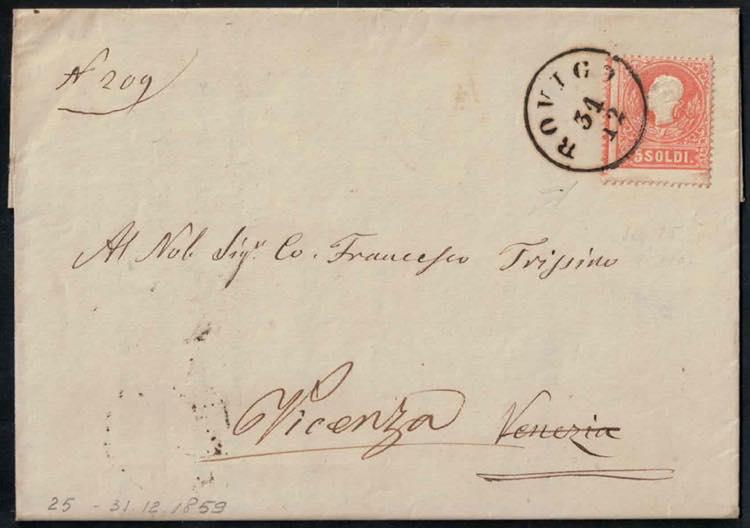 N 209
ROVIGO
31
12
5 SOLDI.
Al Nob. Sigr. Co. Francesco Trissino
Vicenza Venezia
25 - 31.12.1859